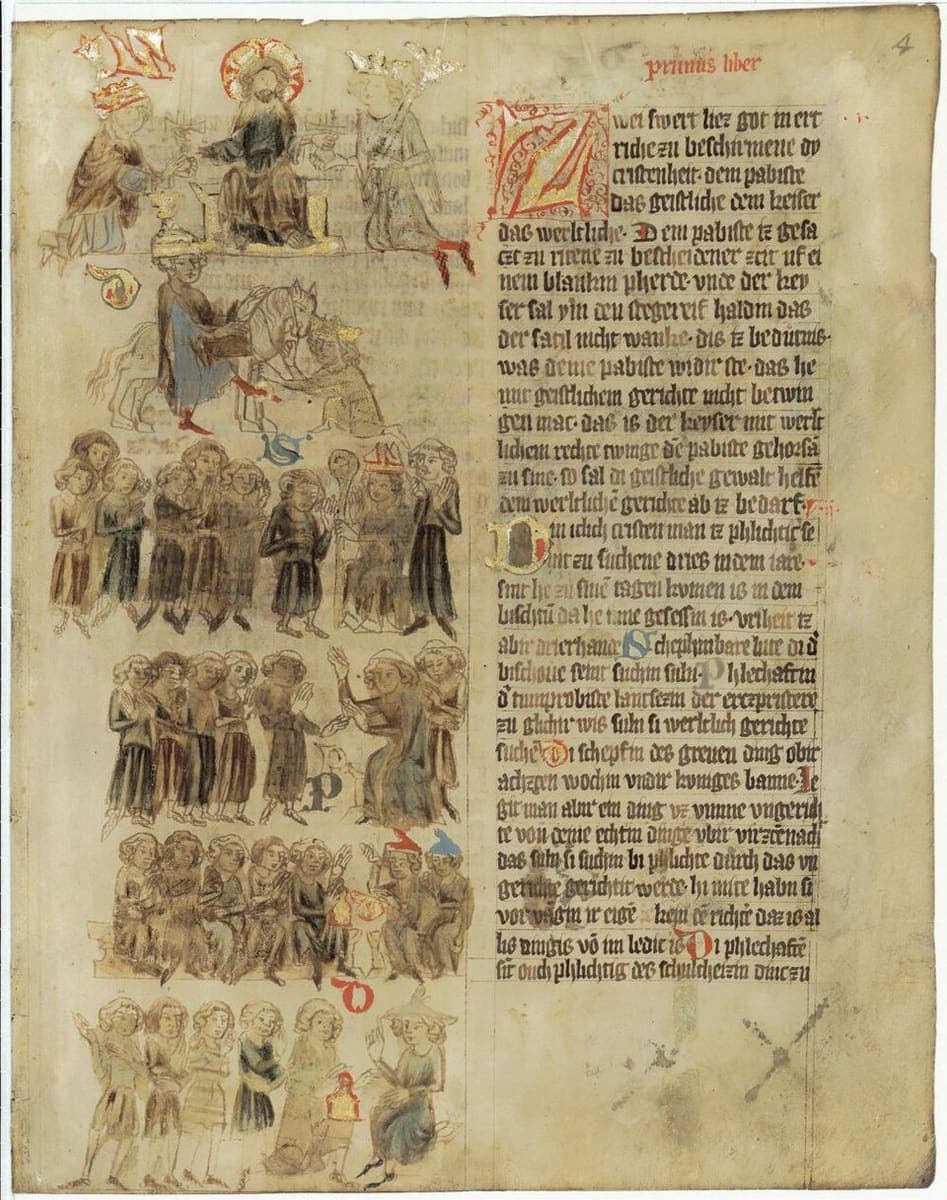 4
primus liber
Zwei swert liez got in ert
riche zu beschirmene dy
cristenheit· dem pabiste
das geistliche dem keiser
das werltliche· Dem pabiste iz gesa
czt zu ritene zu bescheidener zcit uf ei
nem blankin pherde· vnde der key
ser sal ym den stegereif haldin das
der satil nicht wanke· dis iz bedutnis·
was deme pabiste widir ste· das he
mit geistlichem gerichte nicht betwin
gen mac· das is der keyser mit werlt
lichem rechte twinge dē pabiste gehorsā
zu sine· so sal di geistliche gewalt helfē
dem werltlichē gerichte ab iz bedarf·
In iclich cristen man iz phlichtic se
int zu suchene dries in dem iare·
sint he zu sinē tagen komen is in dem
bischtū da he inne gesessin is· vriheit iz
abir drierhande Schephinbare lute di d̓
bischoue seint suchin suln· Phlechaftin
d̓ tumprobiste lantsezin der erczpristere
zu glichir wis suln si werltlich gerichte
suchē Di schepfin des greuen ding obir
achzcen wochin vndir koniges banne· Le
git man abir ein ding vz vmme vngerich
te von deme echtin dinge vbir virzcēnacht
das suln si suchin bi phlichte durch das vn
gerichte gerichtit werde· hi mite habn si
vorwagin ir eigē kein
lis dingis vō im ledic is Di phlechaftē
sīt ouch phlichtig des schulcheizin dinc zu
P